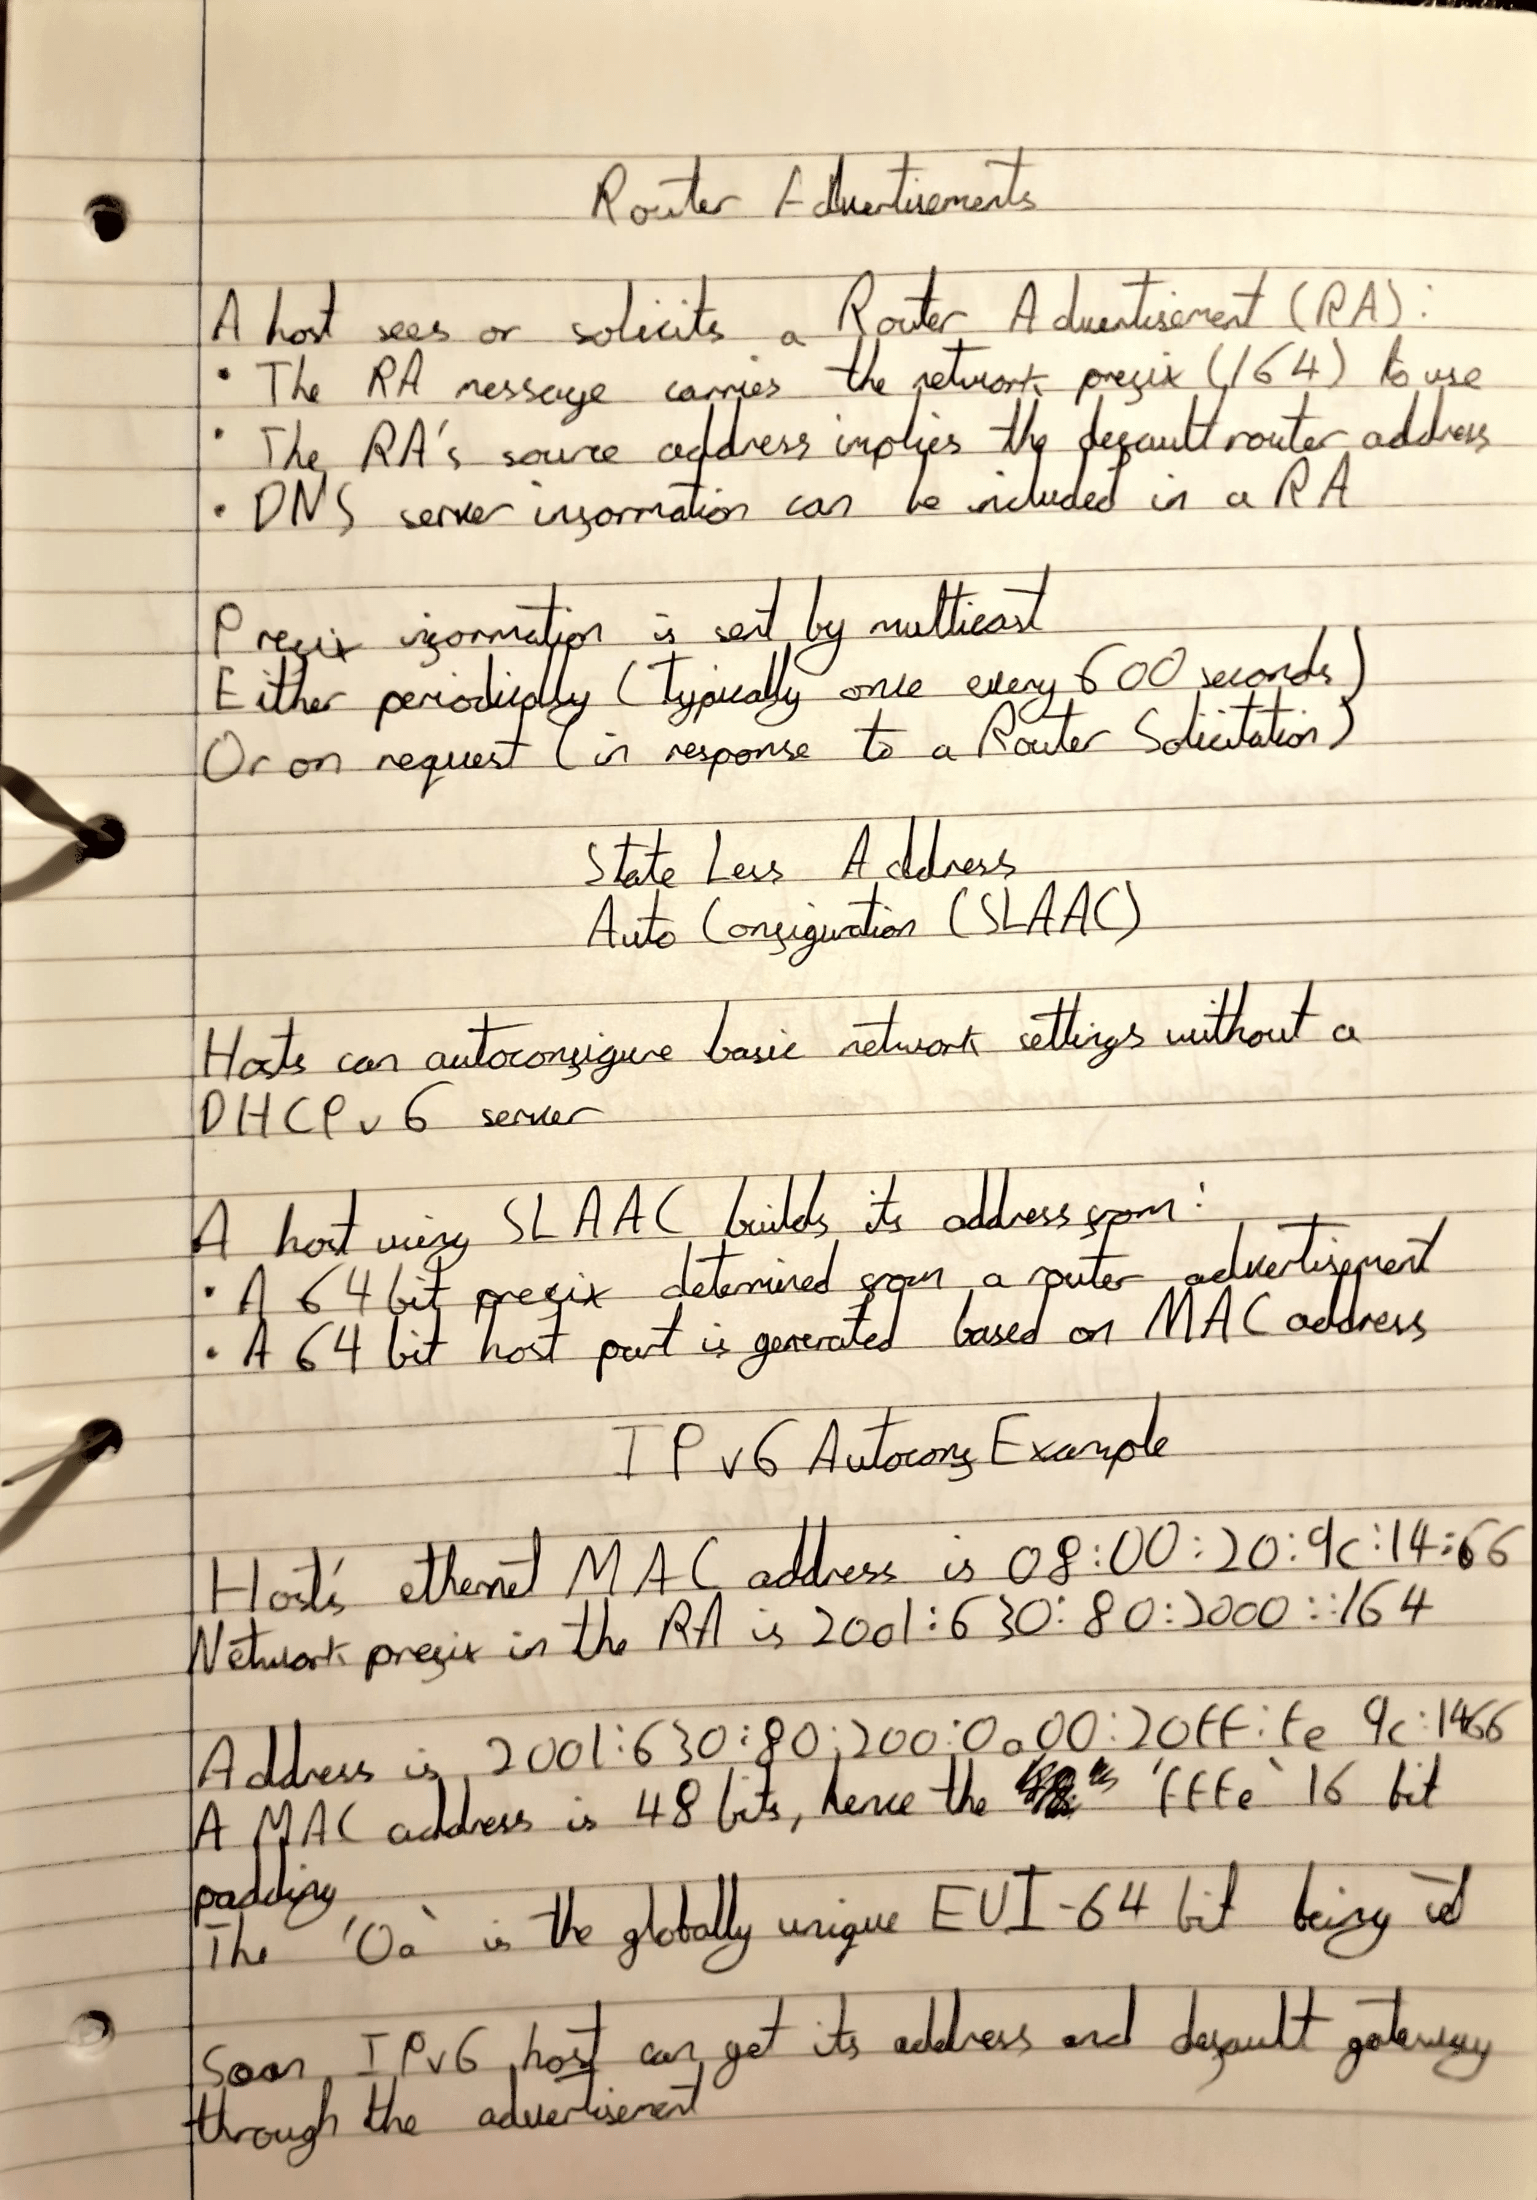 Router Advertisements
A host sees or solicits a Router Advertisement (RA):
• The RA message carries the network prefix (/64) to use
• The RA's source address implies the default router address
• DNS server information can be included in a RA
Prefix information is sent by multicast
Either periodically (typically once every 600 seconds)
Or on request (in response to a Router Solicitation)
State Less Address
Auto Configuration (SLAAC)
Hosts can autoconfigure basic network settings without a
DHCPv6 server
A host using SLAAC builds its address from:
• A 64 bit prefix determined from a router advertisement
• A 64 bit host part is generated based on MAC address
IPv6 Autoconf Example
Host's ethernet MAC address is 08:00:20:9c:14:66
Network prefix in the RA is 2001:630:80:2000::/64
Address is 2001:630:80:200:0a00:20ff:fe 9c:1466
A MAC address is 48 bits, hence the 'fffe' 16 bit
padding
The '0a' is the globally unique EUI-64 bit being
So an IPv6 host can get its address and default gateway
through the advertisement